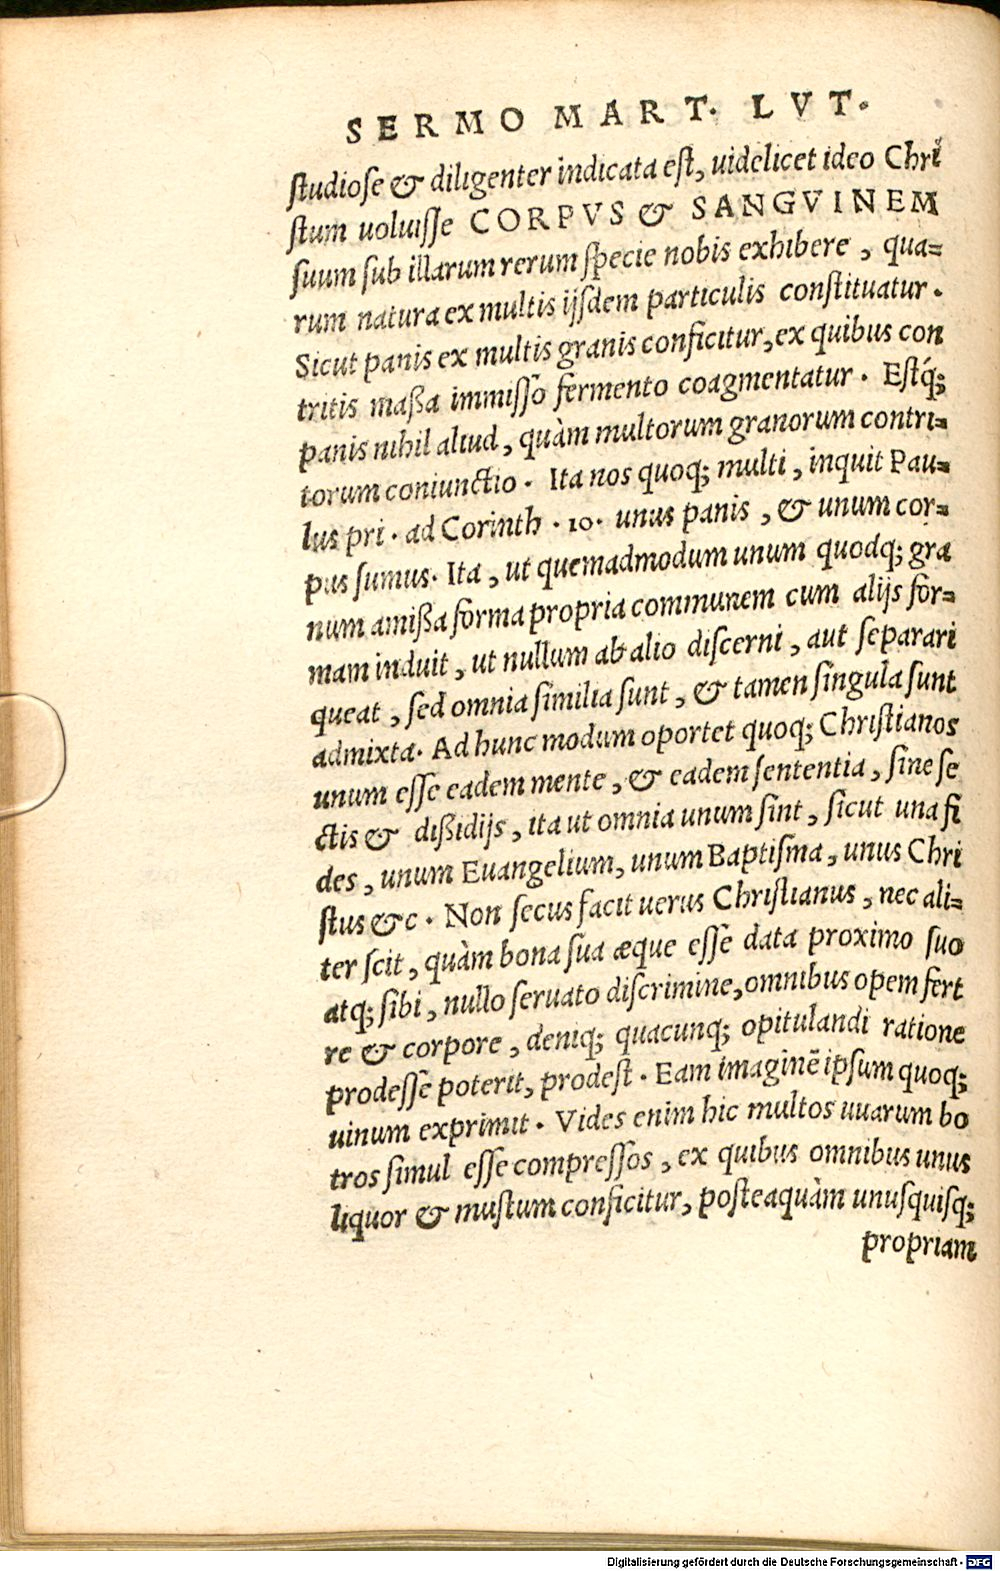 SERMO MART. LVT.
studiose & diligenter indicata est, uidelicet ideo Chri
stum uoluisse CORPVS & SANGVINEM
suum sub illarum rerum specie nobis exhibere, qua=
rum natura ex multis ijsdem particulis constituatur.
Sicut panis ex multis granis conficitur, ex quibus con
tritis maßa immisso fermento coagmentatur. Estq́;
panis nihil aliud, quàm multorum granorum contri=
torum coniunctio. Ita nos quoq; multi, inquit Pau=
lus pri. ad Corinth. 10. unus panis, & unum cor=
pus sumus. Ita, ut quemadmodum unum quodq; gra
num amißa forma propria communem cum alijs for=
mam induit, ut nullum ab alio discerni, aut separari
queat, sed omnia similia sunt, & tamen singula sunt
admixta. Ad hunc modum oportet quoq; Christianos
unum esse eadem mente, & eadem sententia, sine se
ctis & dißidijs, ita ut omnia unum sint, sicut una fi
des, unum Euangelium, unum Baptisma, unus Chri
stus &c. Non secus facit uerus Christianus, nec ali=
ter scit, quàm bona sua æque esse data proximo suo
atq; sibi, nullo seruato discrimine, omnibus opem fert
re & corpore, deniq; quacunq; opitulandi ratione
prodesse poterit, prodest. Eam imaginẽ ipsum quoq;
uinum exprimit. Vides enim hic multos uuarum bo
tros simul esse compressos, ex quibus omnibus unus
liquor & mustum conficitur, posteaquàm unusquisq;
propriam
Digitalisierung gefördert durch die Deutsche Forschungsgemeinschaft - DFG